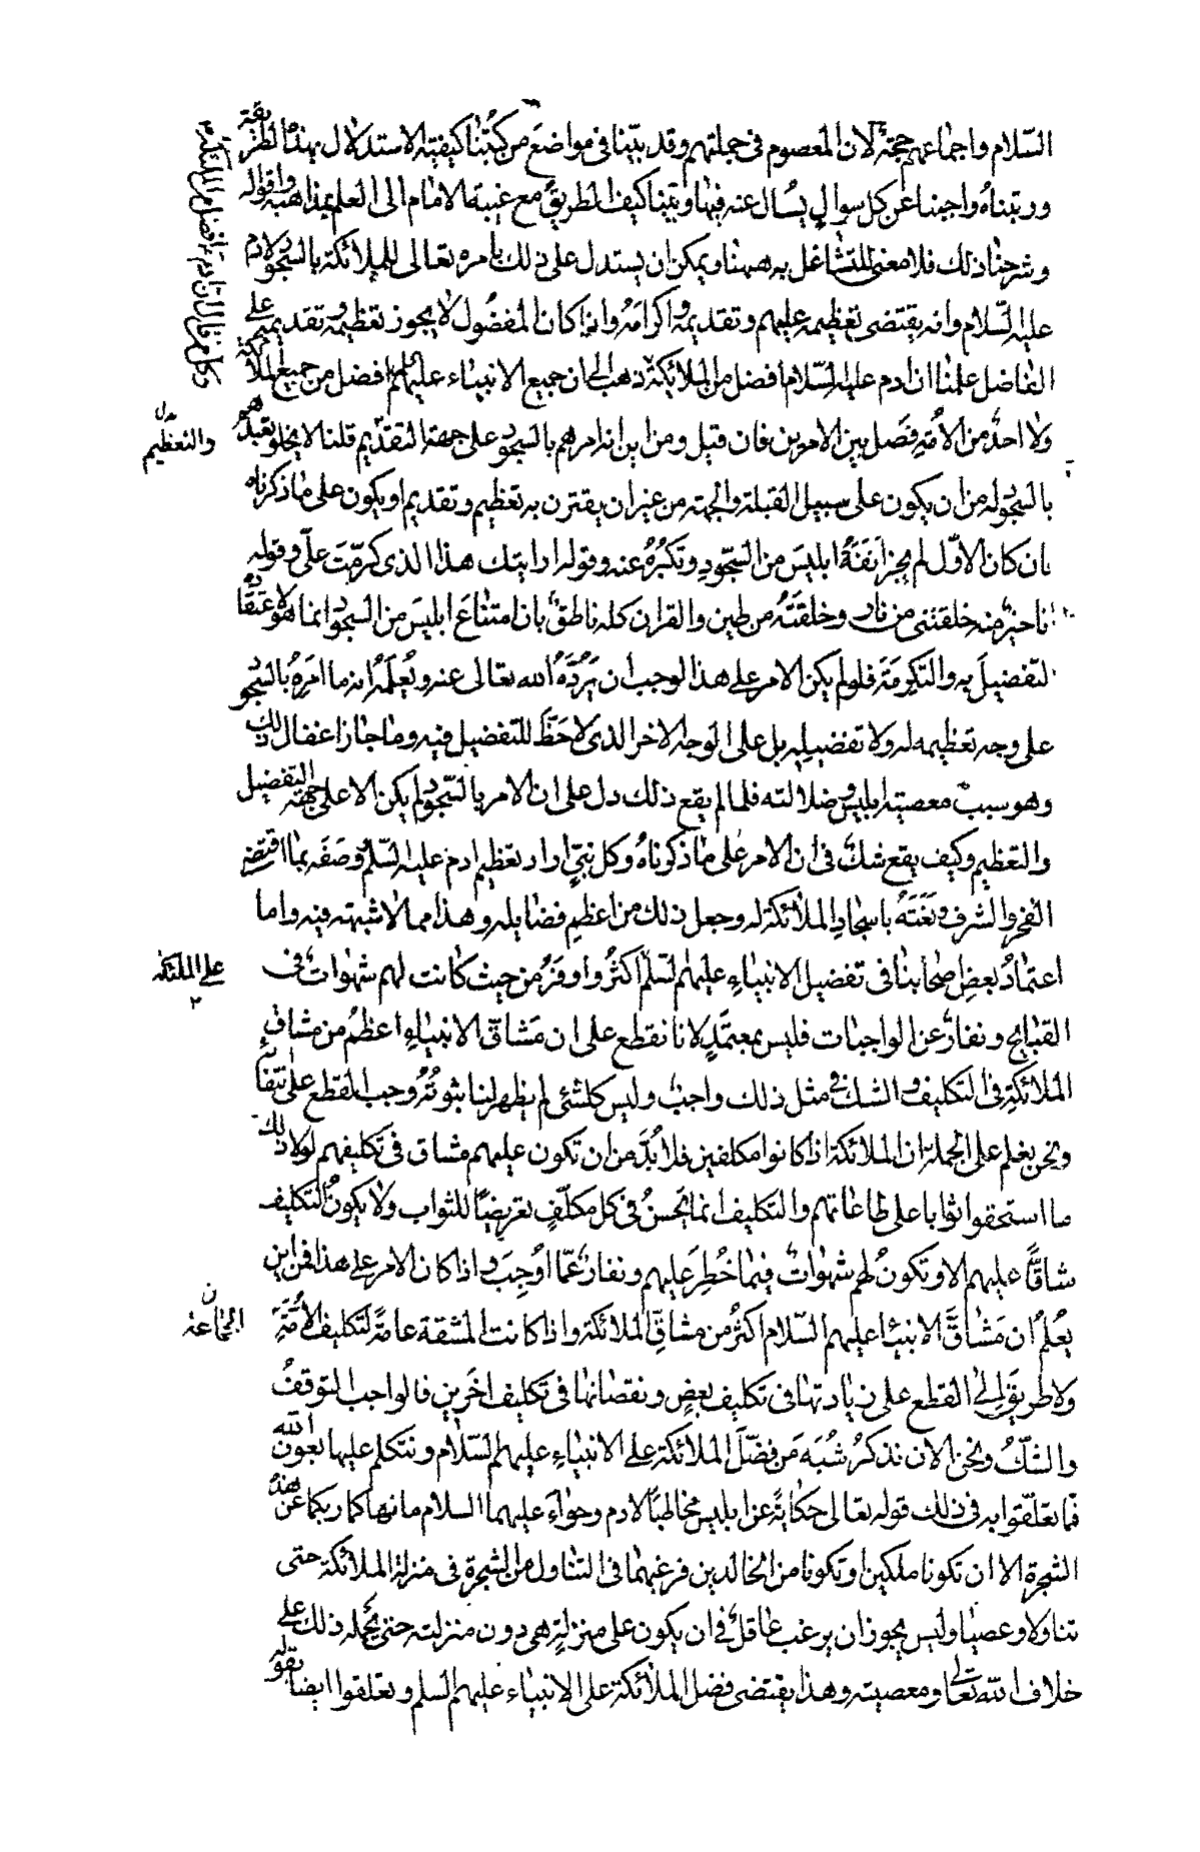 السّلام واجماعهم حجة لان المعصوم فى جملتهم وقد بيّنا فى مواضع من كتبنا كيفية الاستدلال بهذه الطريقة
ورتبناهُ واجبنا عن كل سوالٍ يُسال عنه فيها وبيّنا كيف الطريق مع غيبة الامام الى العلم بمذاهبه واقواله
وشرحنا ذلك فلا معنى للتشاغل به ههنا ويمكن ان يستدل على ذلك بامره تعالى للملائكة بالسجود لادم
عليه السّلام وانه يقتضى تعظيمه عليهم وتقديمه واكرامه واذا كان المفضُول لا يجوز تعظيمه وتقديمه على
الفاضل علمنا ان ادم عليه السّلام افضل من الملائكة ذهب الى ان جميع الانبياء عليهم افضل من جميع الملائكة
ولا احدٌ من الأمّةِ فَصَل بين الامرين فان قيل ومن اين انه امرهم بالسجود على جهة التقدّيم قلنا لا يخلو تعبّدهم
بالسّجود له من ان يكون على سبيل القبلة والجهة من غير ان يقترن به تعظيم وتقديم او يكون على ما ذكرناه
بان كان الاوّل لم يجز اَنَفَةُ ابليسَ من السّجودِ وتكبُرُهُ عنه وقوله ارايتك هذا الذى كرّمتَ علىّ وقوله
انا خير منه خلقتنى من نار وخلقتَهُ من طين والقران كله ناطقٌ بان امتناعَ ابليسَ من السجود انما هو لاعتقاده
التفضيلَ به والتكرمةَ فلو لم يكن الامر على هذا لوجب ان يَرُدَّهُ الله تعالى عنه ويُعلِمَهُ انه ما امرَهُ بالسّجود
على وجه تعظيمه له ولا تفضيله بل على الوجه الاخر الذى لا حَظَّ للتفضيل فيه وما جاز اغفال ذلك
وهو سببٌ معصية ابليس وضلالته فلما لم يقع ذلك دل على ان الامر بالسّجود لم يكن الا على جهة التفضيل
والتعظيم وكيف يقع شكٌ فى ان الامر على ما ذكرناهُ وكل نبىّ اراد تعظيم ادم عليه السّلم وصَفَه بما اقتضى
الفخر والشرف ونَعَتَهُ باسجاد الملائكة له وجعل ذلك من اعظمِ فضايله وهذا مما لا شبهة فيه واما
اعتمادُ بعضِ اصحابنا فى تفضيل الانبياءِ عليهم السّلم اكثرُ واوفرُ من حيث كانت لهم شهوات فى
القبايح ونفارٌ عن الواجبات فليس بمعتمَدٍ لانا نقطع على ان مَشاقّ الانبياءِ اعظمُ من مشاقِ
الملائكةِ فى التكليف والشك فى مثل ذلك واجبٌ وليس كلشئى لم يظهر لنا ثبوتُهُ وجب القطع على انتفائه
ونحن نعلم على الجملة ان الملائكة اذا كانوا مكلفين فلا بُدَّ من ان تكون عليهم مشاق فى تكليفهم لولا ذلك
ما استحقوا ثوابا على طاعاتهم والتكليف انما يَحسنُ فى كل مكلّفٍ تعريضًا للثواب ولا يكونُ التكليف
شاقًّا عليهم الا وتكونُ لهم شهواتٌ فيما خُطِرَ عليهم ونفارٌ عمّا اوُجِبَ واذا كان الامر على هذا فمن اين
يُعلَمُ ان مَشَاقَّ الانبياء عليهم السّلام اكثرُ من مشاقِّ الملائكة واذا كانت المشقة عامةً لتكليف الأمّة
ولا طريق الى القطع على زيادتها فى تكليف بعضٍ ونقصانها فى تكليف اخَرين فالواجب التوقفُ
والشّكُ ونحن الان نذكرُ شُبَهَ مَن فضّلَ الملائكة على الانبياءِ عليهم السّلام ونتكلم عليها بعون الله
فما تعلّقوا به فى ذلك قوله تعالى حكايةً عن ابليس مخاطبًا لادم وحوّاءَ عليهما السلام ما نهاكما ربكما عن هذه
الشجرة الا ان تكونا ملكين او تكونا من الخالدين فرغبهما فى التناول من الشجرة فى منزلة الملائكة حتى
تناولا وعصيا وليس يجوز ان يرغب عاقلٌ فى ان يكون على منزلةٍ هى دون منزلته حتى يَحمله ذلك على
خلاف الله تعالى ومعصيته وهذا يقتضى فضل الملائكة على الانبياء عليهم السلم وتعلقوا ايضا بقوله
وكل من قال ان ادم افضل من الملائكة
والتعظيم
على الملئكة
٢